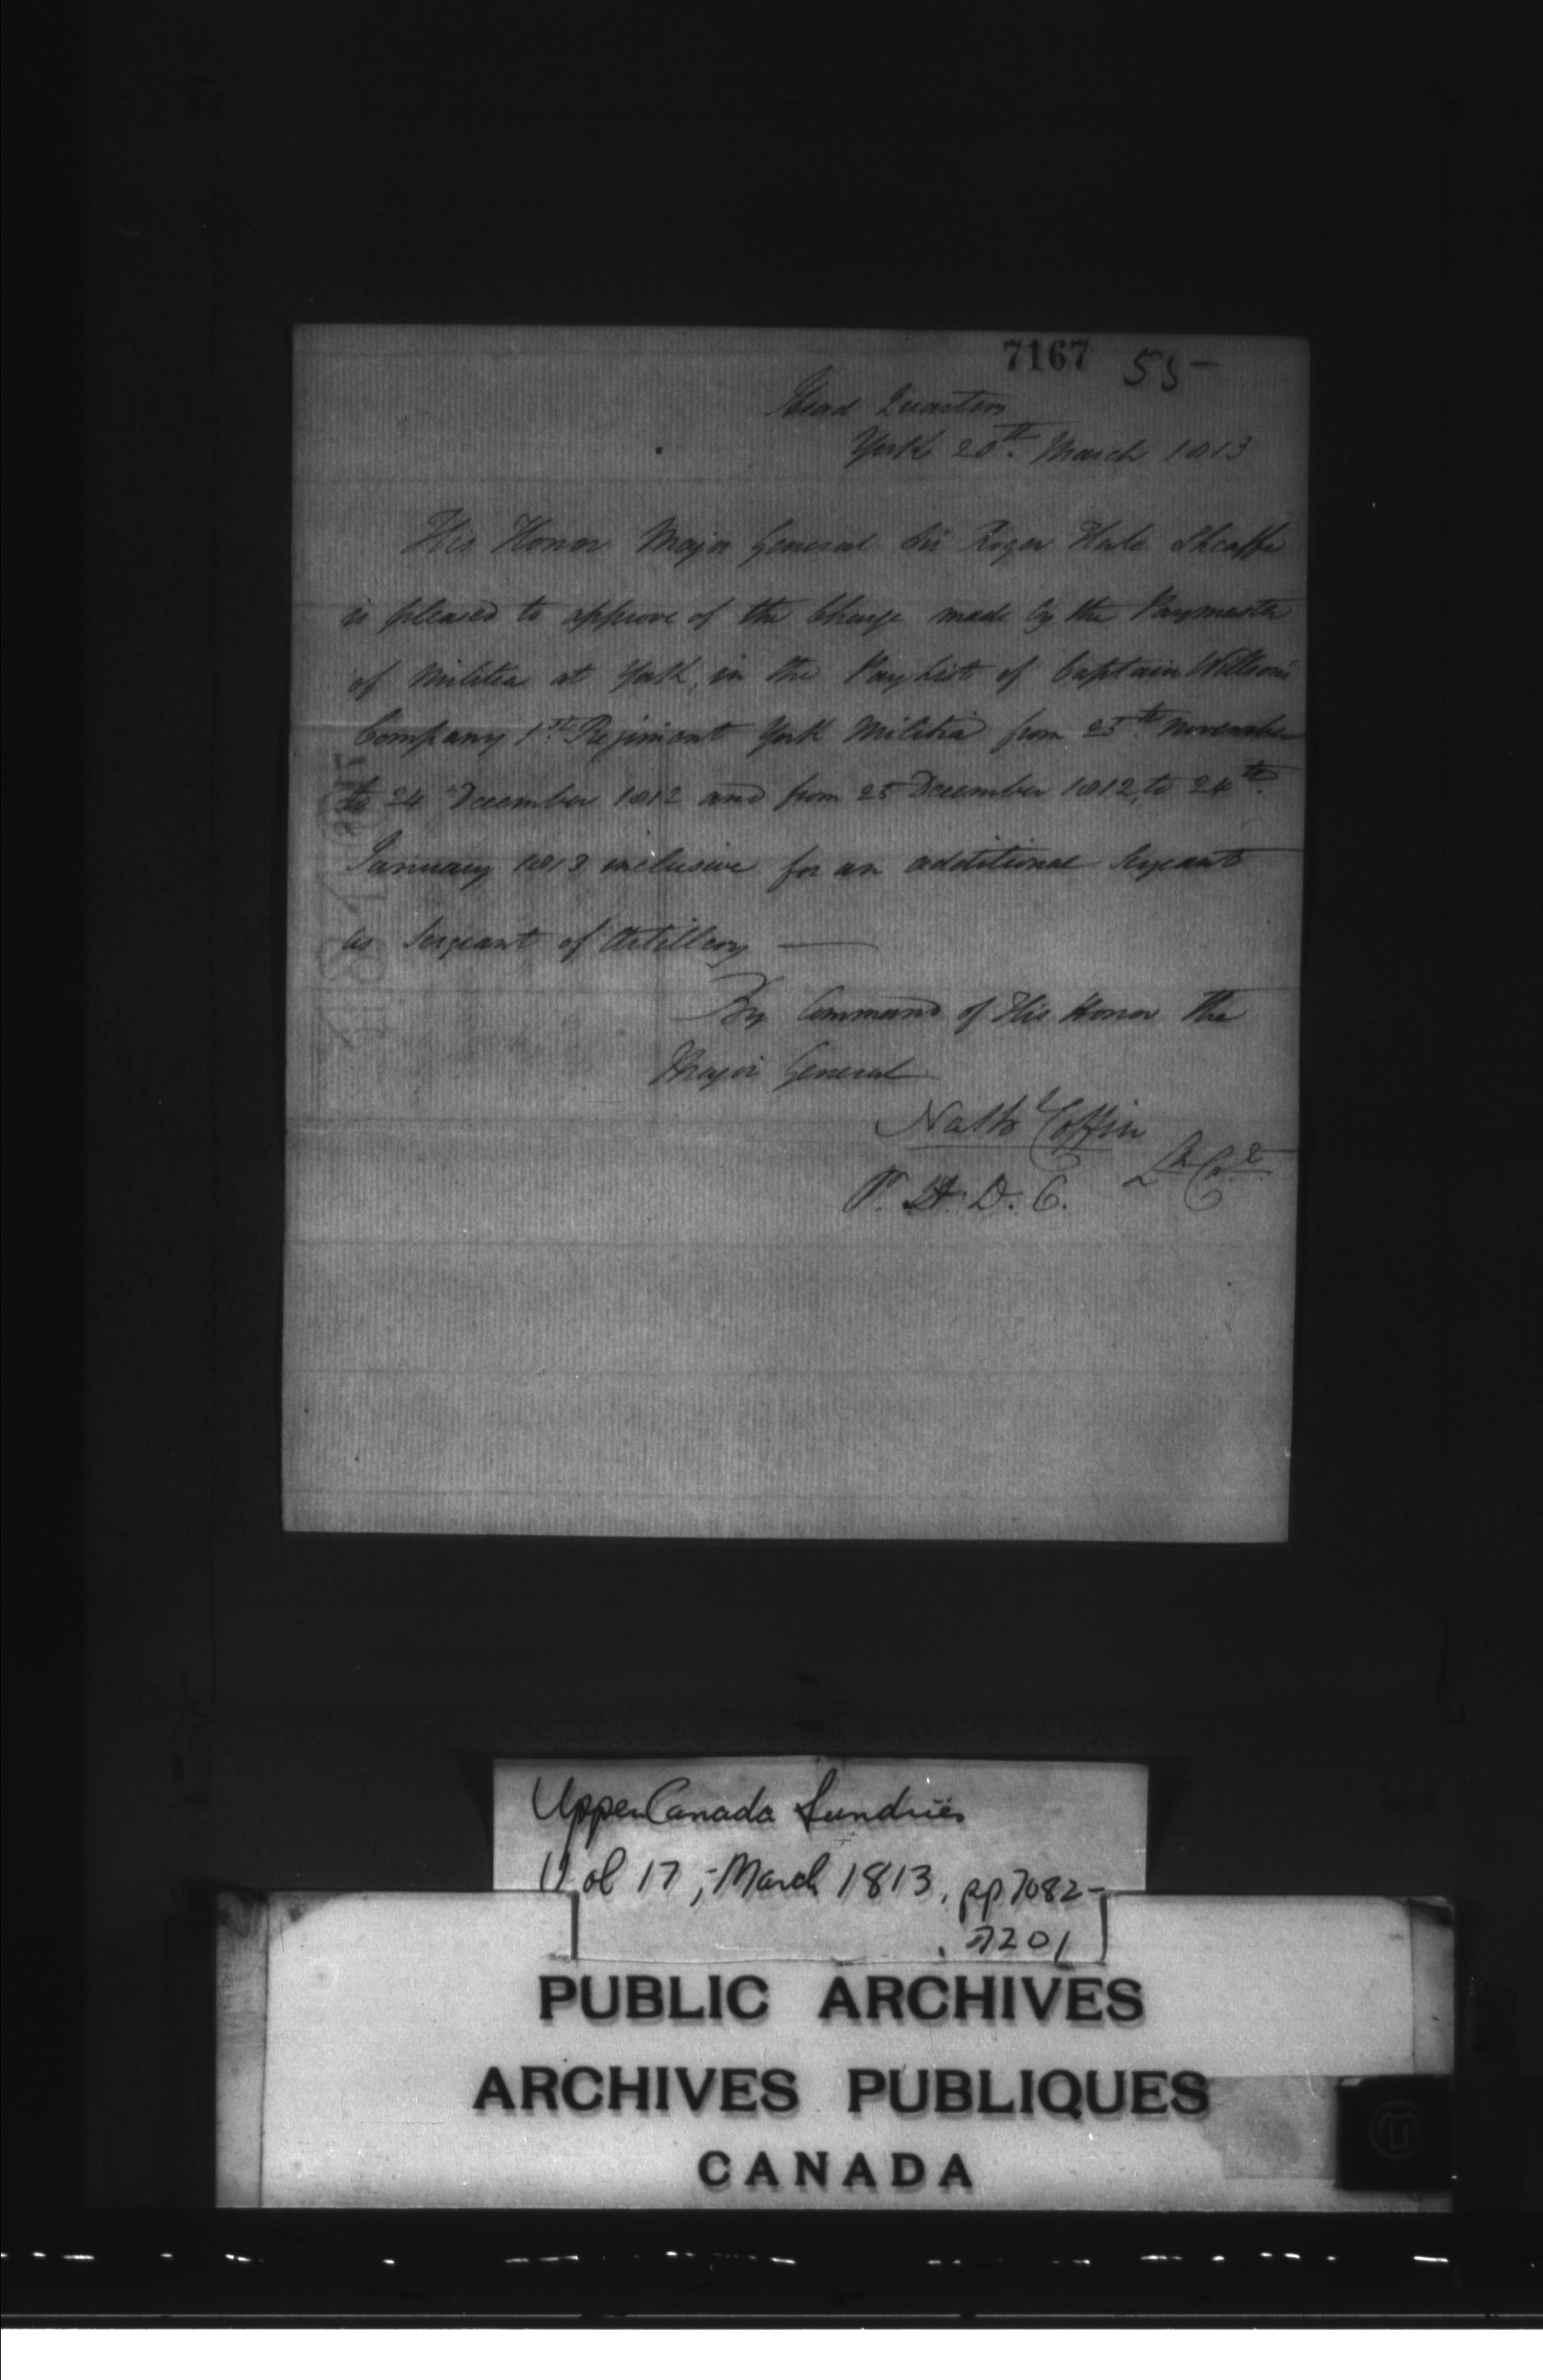 7167 55-
Head Quarters
York 20th. March 1813
His Honor Major General Sir Roger Hale Sheaffe
is pleased to approve of the Charge made by the Paymaster
of Militia at York, in the Paylist of Captain Willson's
Company 1st. Regiment York Militia from 25th. November
to 24 December 1812 and from 25 December 1812, to 24th.
January 1813 inclusive for an additional Sergeant
as Sergeant of Artillery —
By Command of His Honor the
Major General
Nathl Coffin
P. A. D. C. Lt. Col.
Upper Canada Sundries
Vol 17, - March 1813, pp 7082-
7201
PUBLIC ARCHIVES
ARCHIVES PUBLIQUES
CANADA